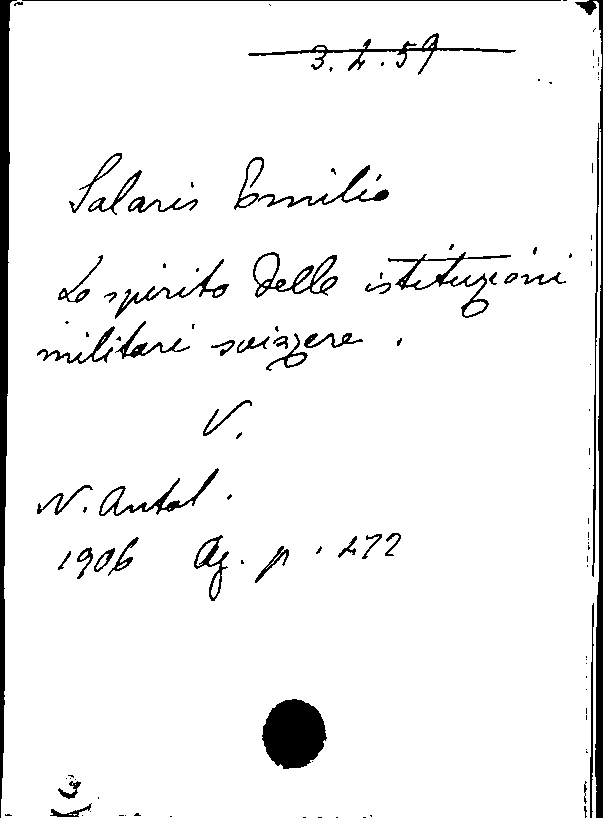 3.4.59
Salaris Emilio
Lo spirito delle istituzioni
militari svizzere.
V.
N. Antol.
1906 Ag. p. 472
3